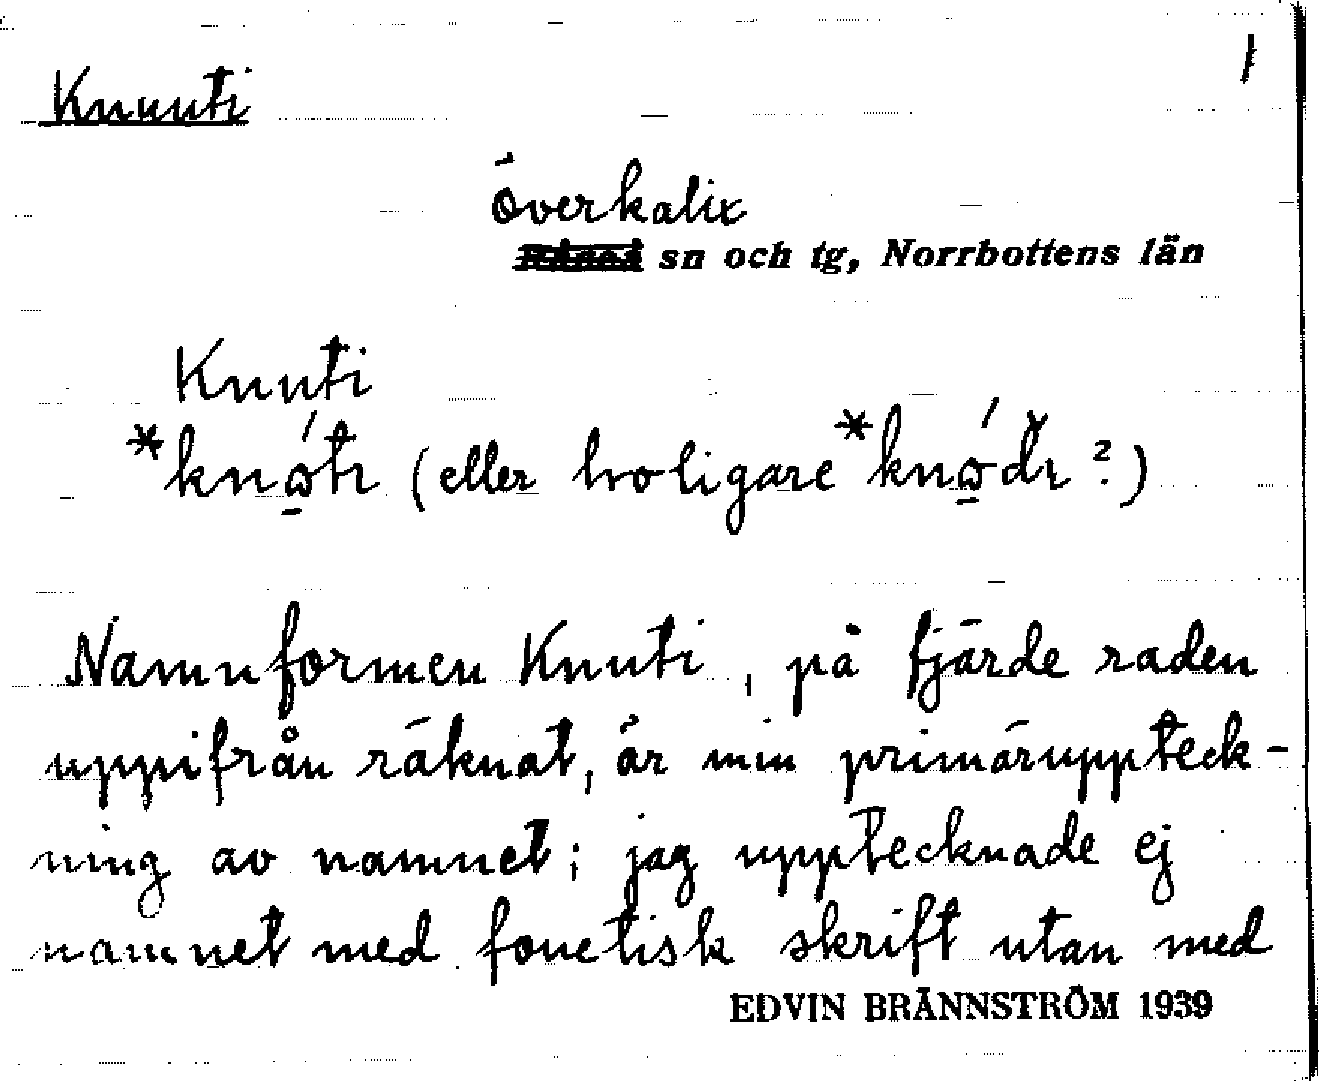 1
Knuuti
Överkalix
sn och tg, Norrbottens län
Knuti
*knó̱tı (eller troligare *knó̱đı ?)
Namnformen Knuti, på fjärde raden
uppifrån räknat, är min primäruppteck-
ning av namnet; jag upptecknade ej
namnet med fonetisk skrift utan med
EDVIN BRÄNNSTRÖM 1939